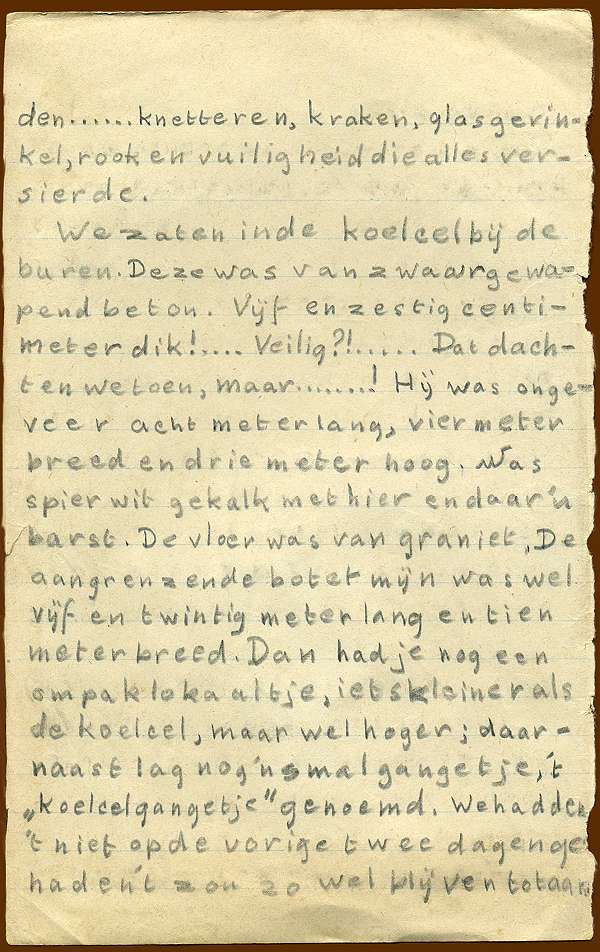 den......knetteren, kraken, glasgerin-
kel, rook en vuiligheid die alles ver-
sierde.
We zaten in de koelcel bij de
buren. Deze was van zwaar gewa-
pend beton. Vijf en zestig centi-
meter dik!.... Veilig?!...... Dat dach-
ten we toen, maar.......! Hij was onge-
veer acht meter lang, vier meter
breed en drie meter hoog. Was
spier wit gekalk met hier en daar 'n
barst. De vloer was van graniet, De
aangrenzende
mijn was wel
vijf en twintig meter lang en tien
meter breed. Dan had je nog een
ompak lokaaltje, iets kleiner als
de koelcel, maar wel hoger; daar-
naast lag nog 'n smal gangetje, 't
„koelcelgangetje" genoemd. We hadden
't niet op de vorige twee dagen ge-
had en 't zou zo wel blijven tot aan